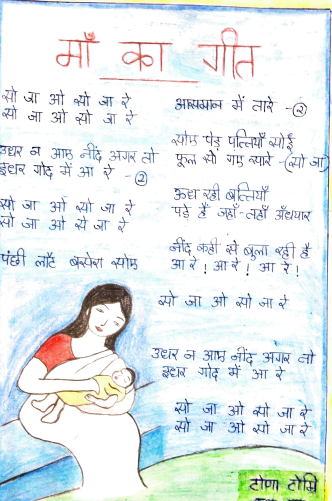 माँ का गीत
सो जा ओ सो जा रे
सो जा ओ सो जा रे
उधर न आए नींद अगर तो
इधर गोद में आ रे -②
सो जा ओ सो जा रे
सो जा ओ से जा रे
पंछी लौट बसेरा सोए
आसमान में तारे -②
सोए पेड़ पत्तियाँ सोईं
फूल सो गए सारे -(सो जा)
ऊंघ रही बत्तियाँ
पड़े हैं जहाँ-तहाँ अँधयार
नींद कहीं से बुला रही है
आ रे! आ रे! आ रे!
सो जा ओ सो जा रे
उधर न आए नींद अगर तो
इधर गोद में आ रे
सो जा ओ सो जा रे
सो जा ओ सो जा रे
टोपा टोपि